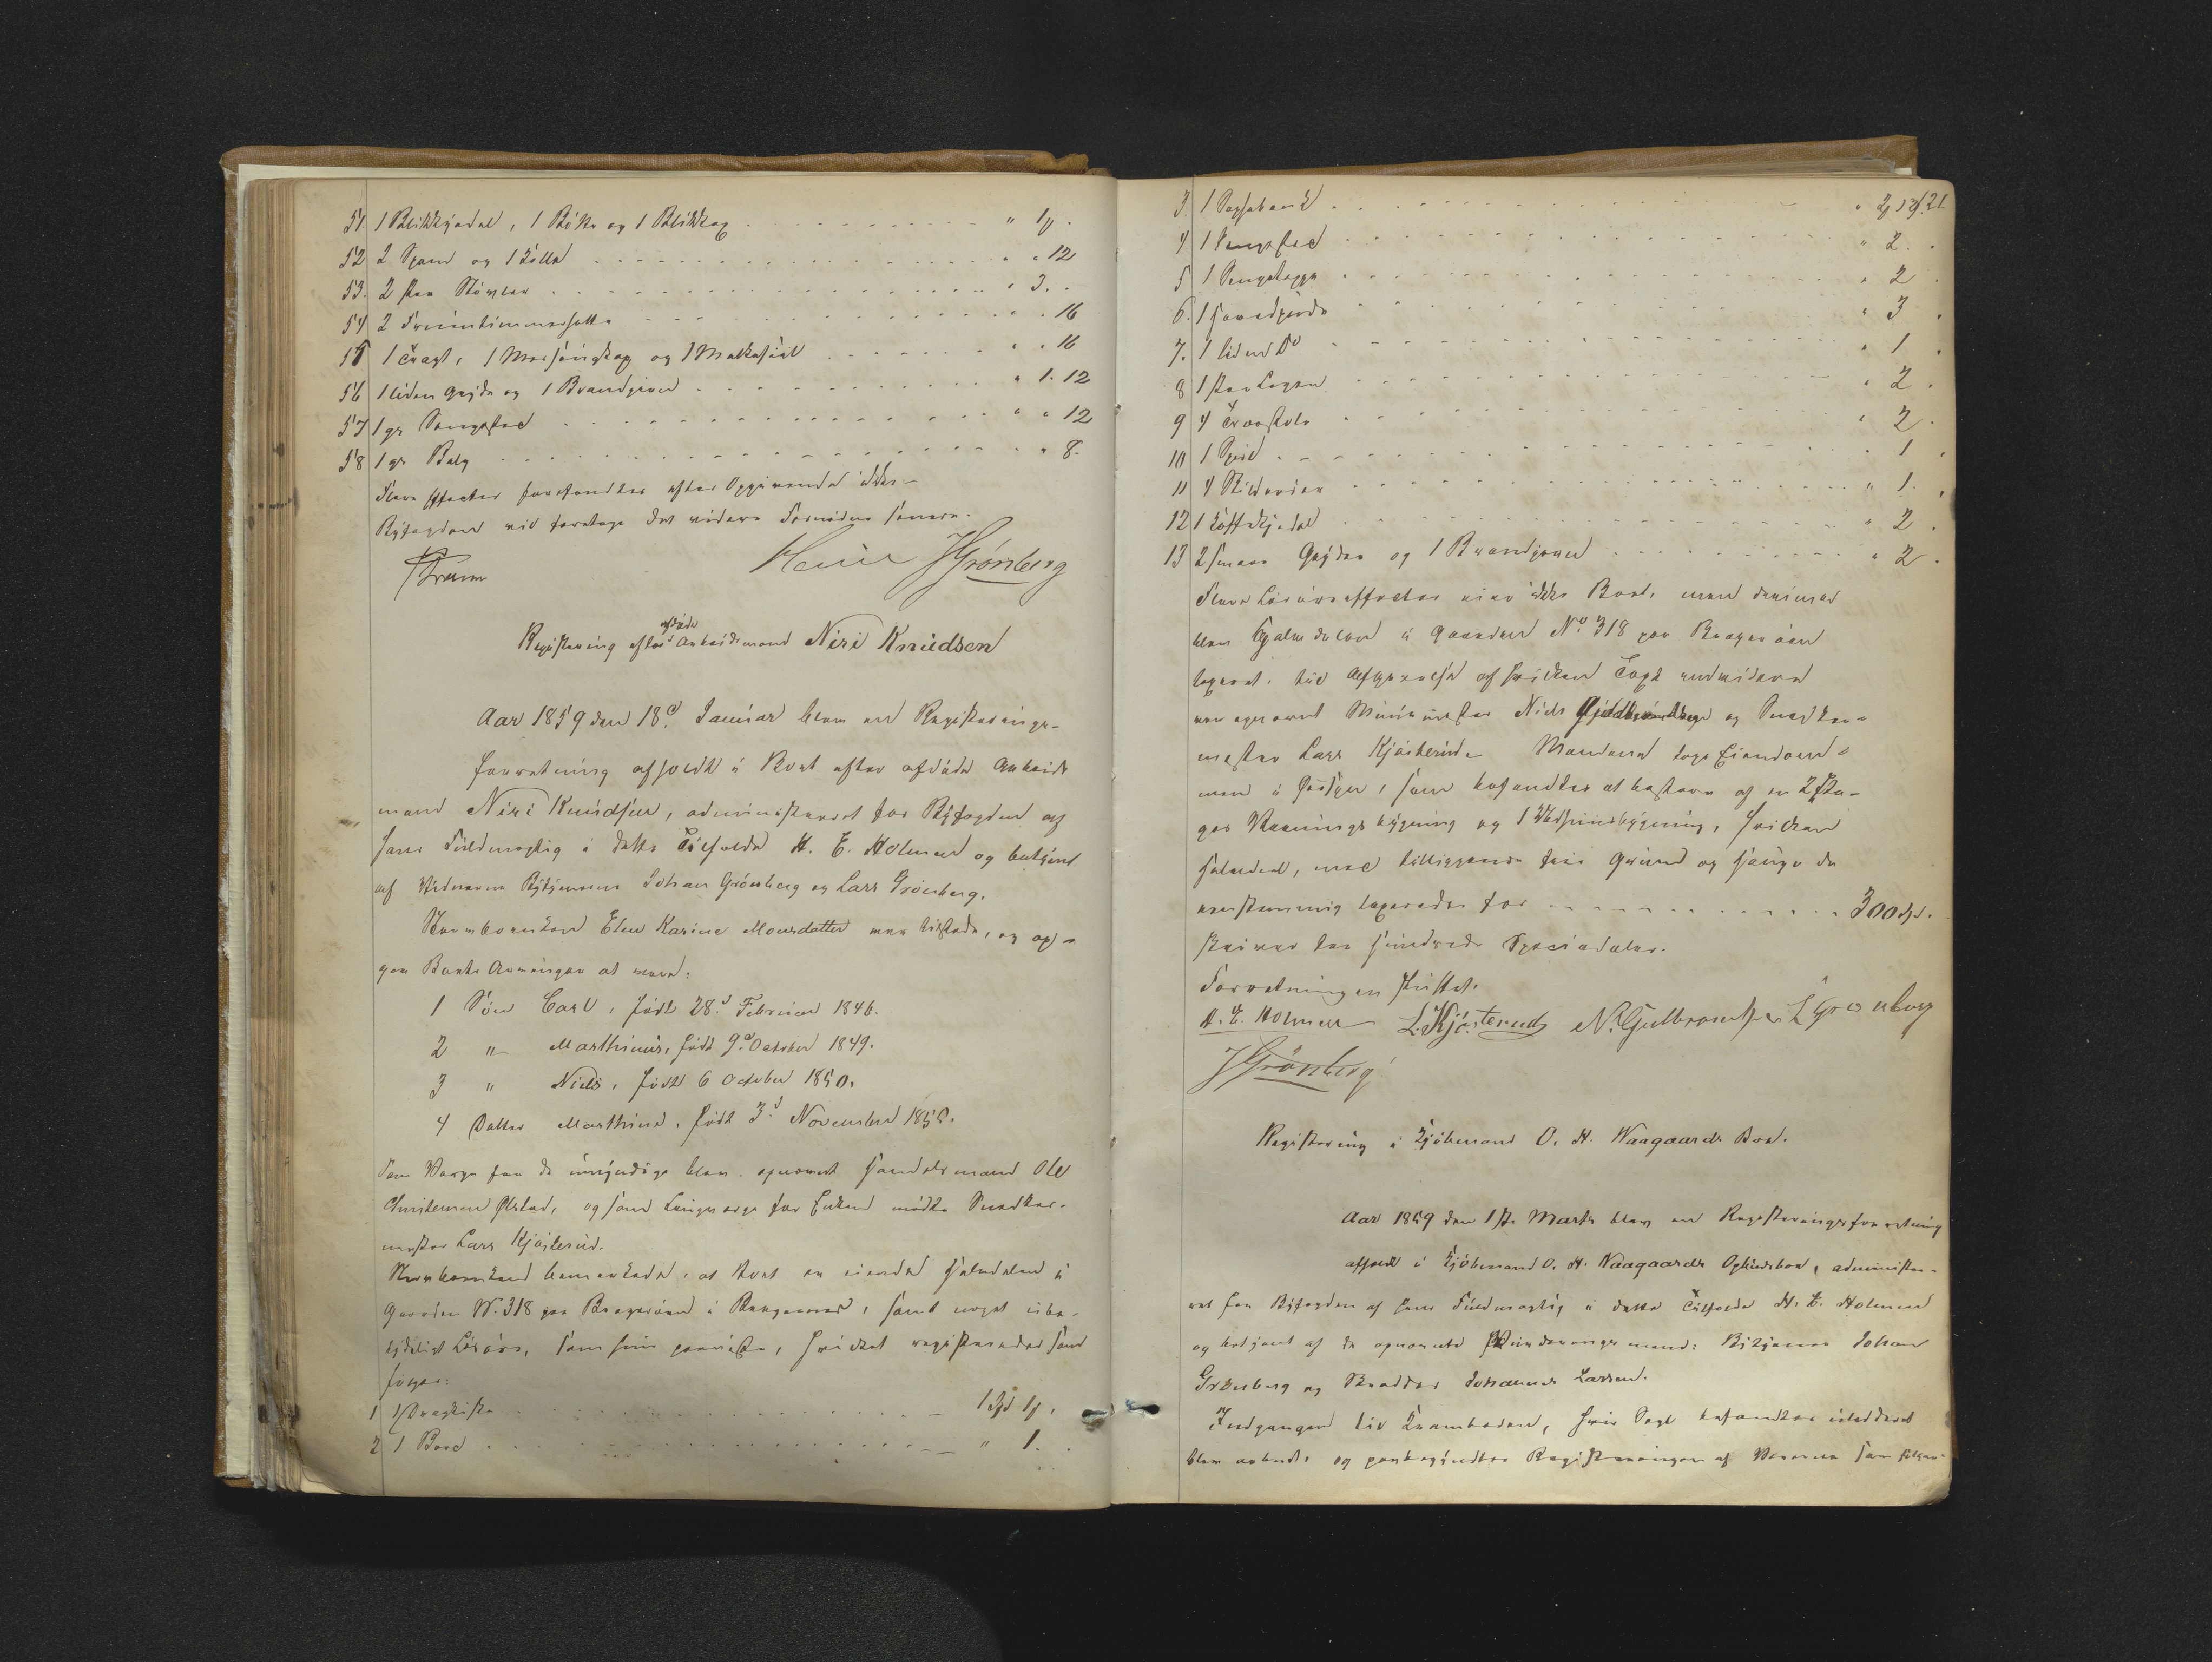 51 1 Blikkjedel, 1 Bötte og 1 Blikkop " 1 ß.
52 2 Spand og 1 Kolle " " 12
53. 2 Par Stövler " 3. .
54 2 Fruentimmerhatte " " 16
55 1 Tragt, 1 og 1 " " 16
56 1 liden Gryde og 1 Brandjern " 1. 12
57 1 gr Sengested " " 12
58 1 gr Balg " " 8.
Flere Effecter forefandtes efter Opgivende ikke.
Byfogden vil foretage det videre Fornödne senere.
Hein JGrönberg
Registrering efter afdöde Arbeidsmand Niri Knudsen
Aar 1859 den 18d Januar blev en Registrerings-
forretning afholdt i Boet efter afdöde Arbeids
mand Niri Knudsen, administreret for Byfogden af
hans Fuldmægtig i dette Tilfælde H. E. Holmen og betjent
af Vidnerne Bytjenerne Johan Grönberg og Lars Grönberg.
Stervboenken Elen Karine Monsdatter var tilstede, og op-
gav Boets Arvinger at være:
1 Sön Carl, födt 28d Februar 1846.
2 " Marthinus, födt 9d October 1849.
3 " Niels, födt 6 October 1850.
4 Datter Marthine, födt 3d November 1858.
Som Værge for de umyndige blev opnævnt Handelsmand Ole
Christensen Ölstad, og som Laugværge for Enken mödte Snedker-
mester Lars Kjösterud.
Stervboenken bemærkede, at Boet er eiende Halvdelen i
Gaarden N. 318 paa Brageröen i Bragernæs, samt noget ube-
tydeligt Lösöre, som hun paaviste, hvilket registreredes som
fölger:
1 1 Dragkiste 1 Spd 1 ß.
2 1 Bord " 1. .
3. 1 Sophabænk " 2 ß 12 ß. 21
4 1 Sengested " 2. .
5 1 Sengeteppe " 2 .
6. 1 Hovedpude " 3 .
7. 1 liden Do " 1 .
8 1 Par Lagen " 2 .
9 4 Træstole " 2 .
10 1 Speil " 1 .
11 4 Skilderier " 1. .
12 1 Kaffekjedel " 2 .
13 2 smaa Gryder og 1 Brandjern " 2 .
Flere Lösöreeffecter eier ikke Boet, men derimod
blev Halvdelen i Gaarden No 318 paa Brageröen
taxeret. til Afgivelse af hvilken Taxt endvidere
var opnævnt Muurmester Niels Guldbrandsen og Snedker-
mester Lars Kjösterud. Mændene toge Eiendom-
men i Öiesyn, som befandtes at bestaae af en 2 Eta-
ges Vaaningsbygning og 1 Udhuusbygning, hvilken
Halvdel, med tilliggende frie Grund og Hauge de
eenstemmig taxerede for 300 Spd.
skriver tre hundrede Speciedaler.
Forretningen sluttet.
H. E. Holmen L. Kjösterud N. Gulbrandsen L Grönberg
JGrönberg
Registrering i Kjöbmand O. H. Waagaards Boe.
Aar 1859 den 1ste Marts blev en Registreringsforretning
afholdt i Kjöbmand O. H. Waagaards Opbudsboe, administre-
ret for Byfogden af hans Fuldmægtig i dette Tilfælde H. E. Holmen
og betjent af de opnævnte Vurderingsmænd: Bytjener Johan
Grönberg og Skrædder Johannes Larsen.
Indgangen til Kramboden, hvis Segl befandtes ubeskadiget
blev aabnet, og paabegyndtes Registreringen af Varerne som fölger: